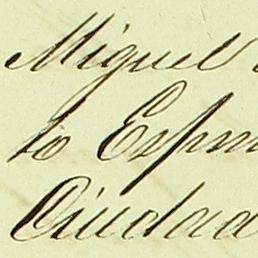 Miguel
to Espin
Ciudad